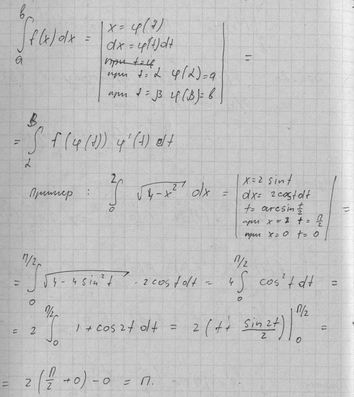 b∫a f(x) dx = | x = φ(t)
dx = φ'(t)dt
при t = α φ(α) = a
при t = β φ(β) = b | =
= β∫α f(φ(t)) φ'(t) dt
Пример : 2∫0 √(4-x²) dx = | x = 2 sin t
dx = 2cos t dt
t = arcsin t/2
при x = 2 t = π/2
при x = 0 t = 0 | =
= π/2∫0 √(4-4 sin² t) · 2 cos t dt = 4 π/2∫0 cos² t dt =
= 2 π/2∫0 1 + cos 2t dt = 2 (t + sin 2t/2) |π/2 0 =
= 2 (π/2 + 0) - 0 = π.